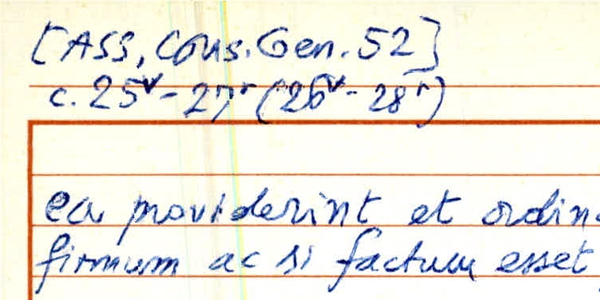 [ASS, Cons. Gen. 52]
c. 25v - 27r (26v - 28r)
ea providerint et ordin
firmum ac si factum esset